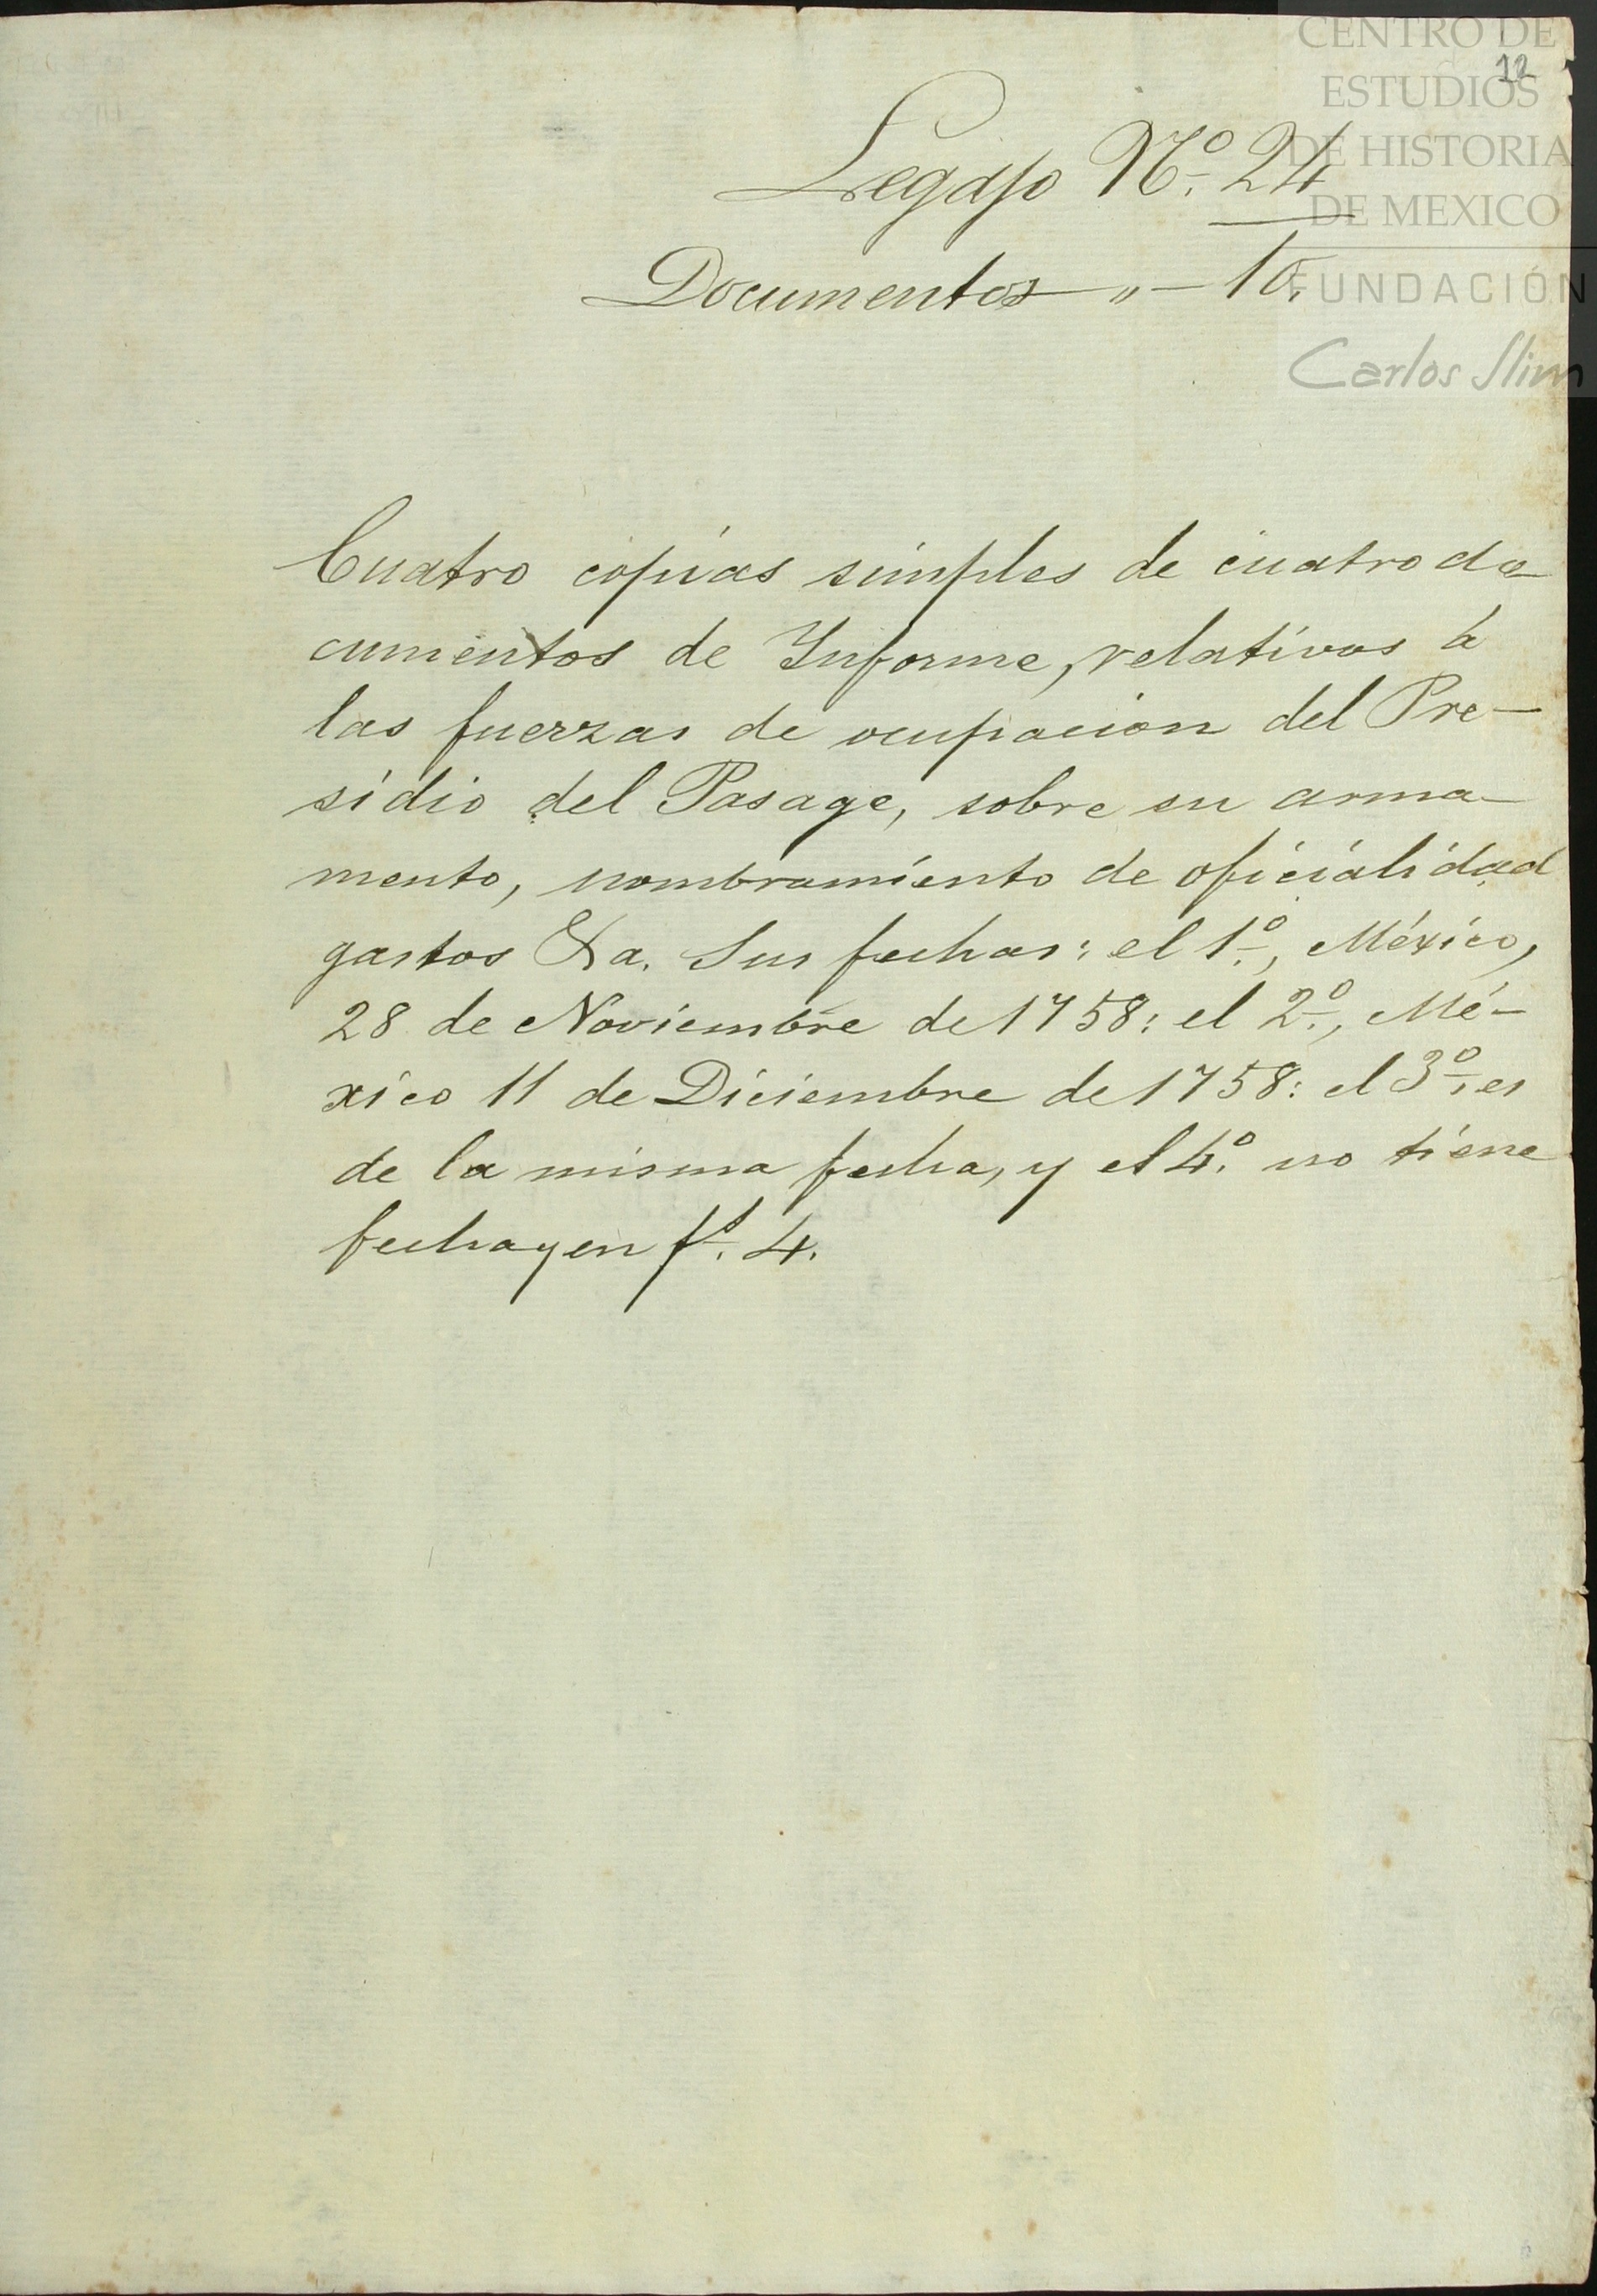 CENTRO DE
ESTUDIOS
DE HISTORIA
DE MEXICO
FUNDACIÓN
Carlos Slim
12
Legajo N.º 24
Documentos „ — 10.
Cuatro copias simples de cuatro do
cumentos de Informe, relativos á
las fuerzas de ocupacion del Pre-
sidio del Pasage, sobre su arma-
mento, nombramiento de oficialidad
gastos &a. Sus fechas: el 1.º, México,
28 de Noviembre de 1758: el 2.º, Mé-
xico 11 de Diciembre de 1758: el 3.º, es
de la misma fecha, y el 4.º no tiene
fecha y en fs. 4.